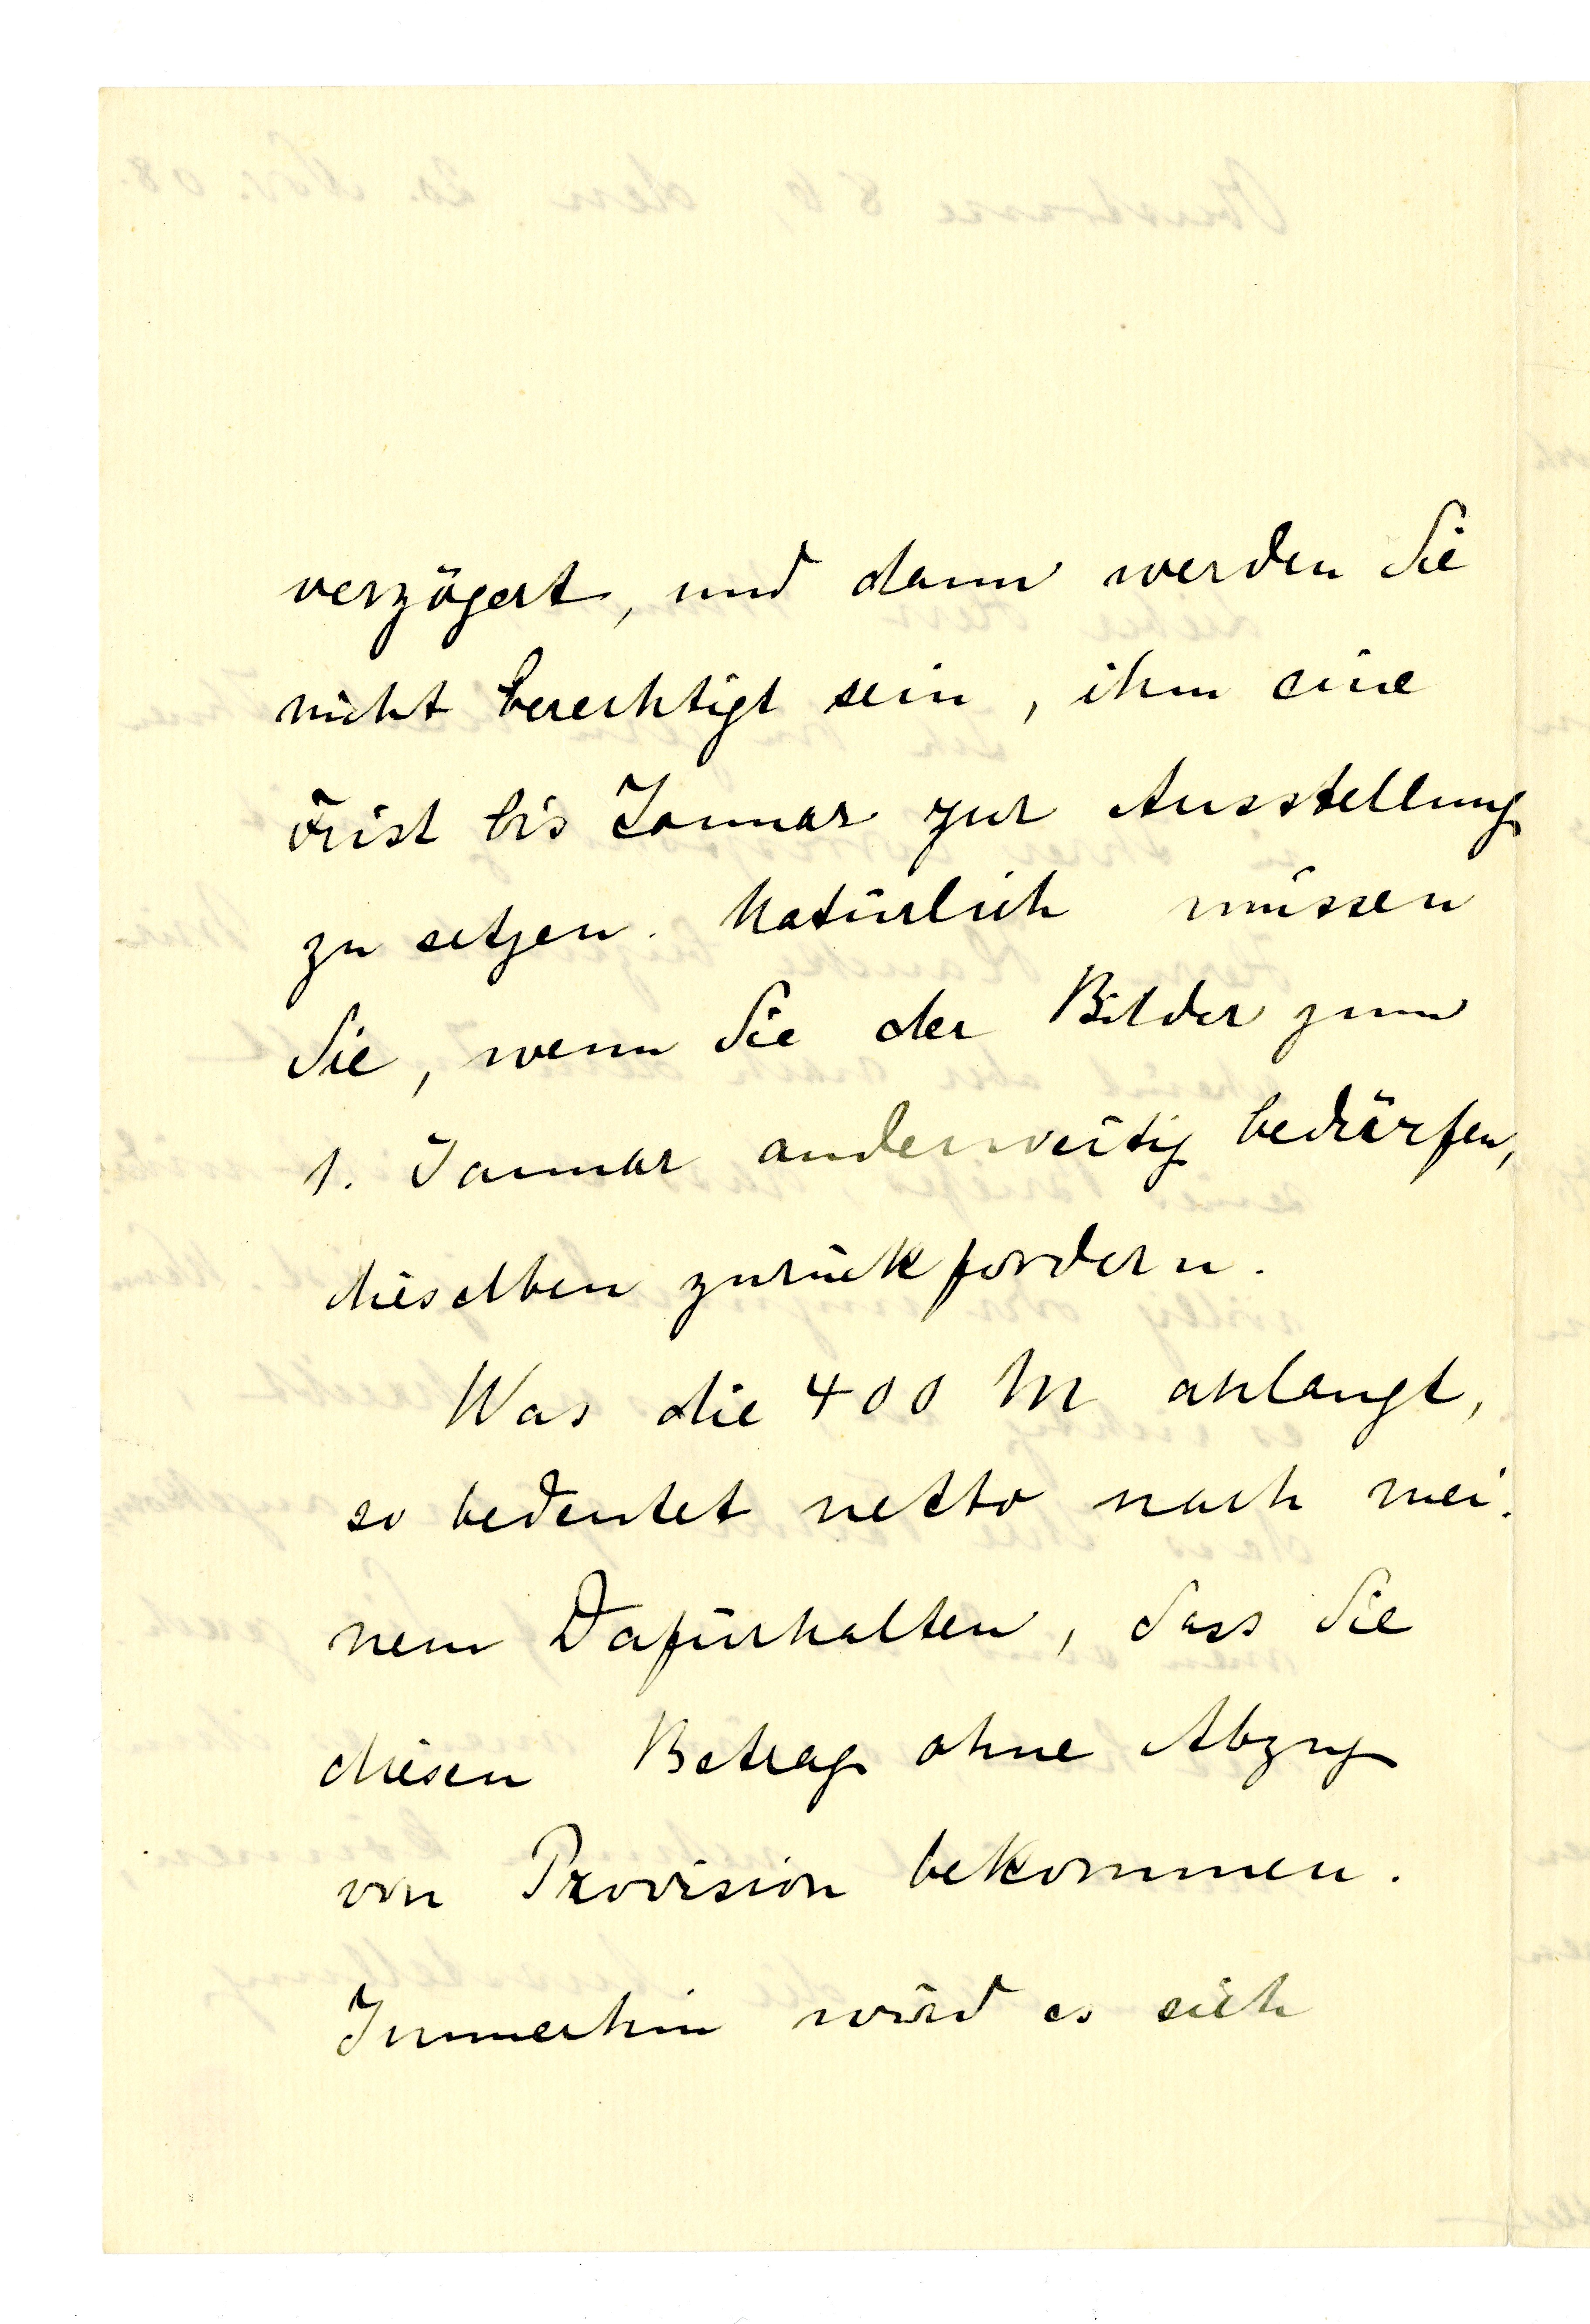 verzögert, und dann werden Sie
nicht berechtigt sein, ihm eine
Frist bis Januar zur Ausstellung
zu setzen. Natürlich müssen
Sie, wenn Sie der Bilder zum
1. Januar anderweitig bedürfen,
dieselben zurückfordern.
Was die 400 M anlangt,
so bedeutet netto nach mei-
nem Dafürhalten, dass Sie
diesen Betrag ohne Abzug
von Provision bekommen.
Immerhin wird es sich